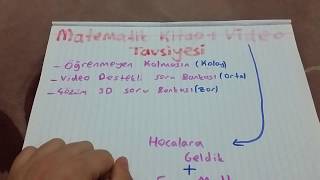 Matematik Kitap + Video
Tavsiyesi
- Öğrenmeyen Kalmasın (Kolay)
- Video Destekli soru Bankası (Orta)
- Çözüm 3D soru Bankası (Zor)
Hocalara
Geldik
+